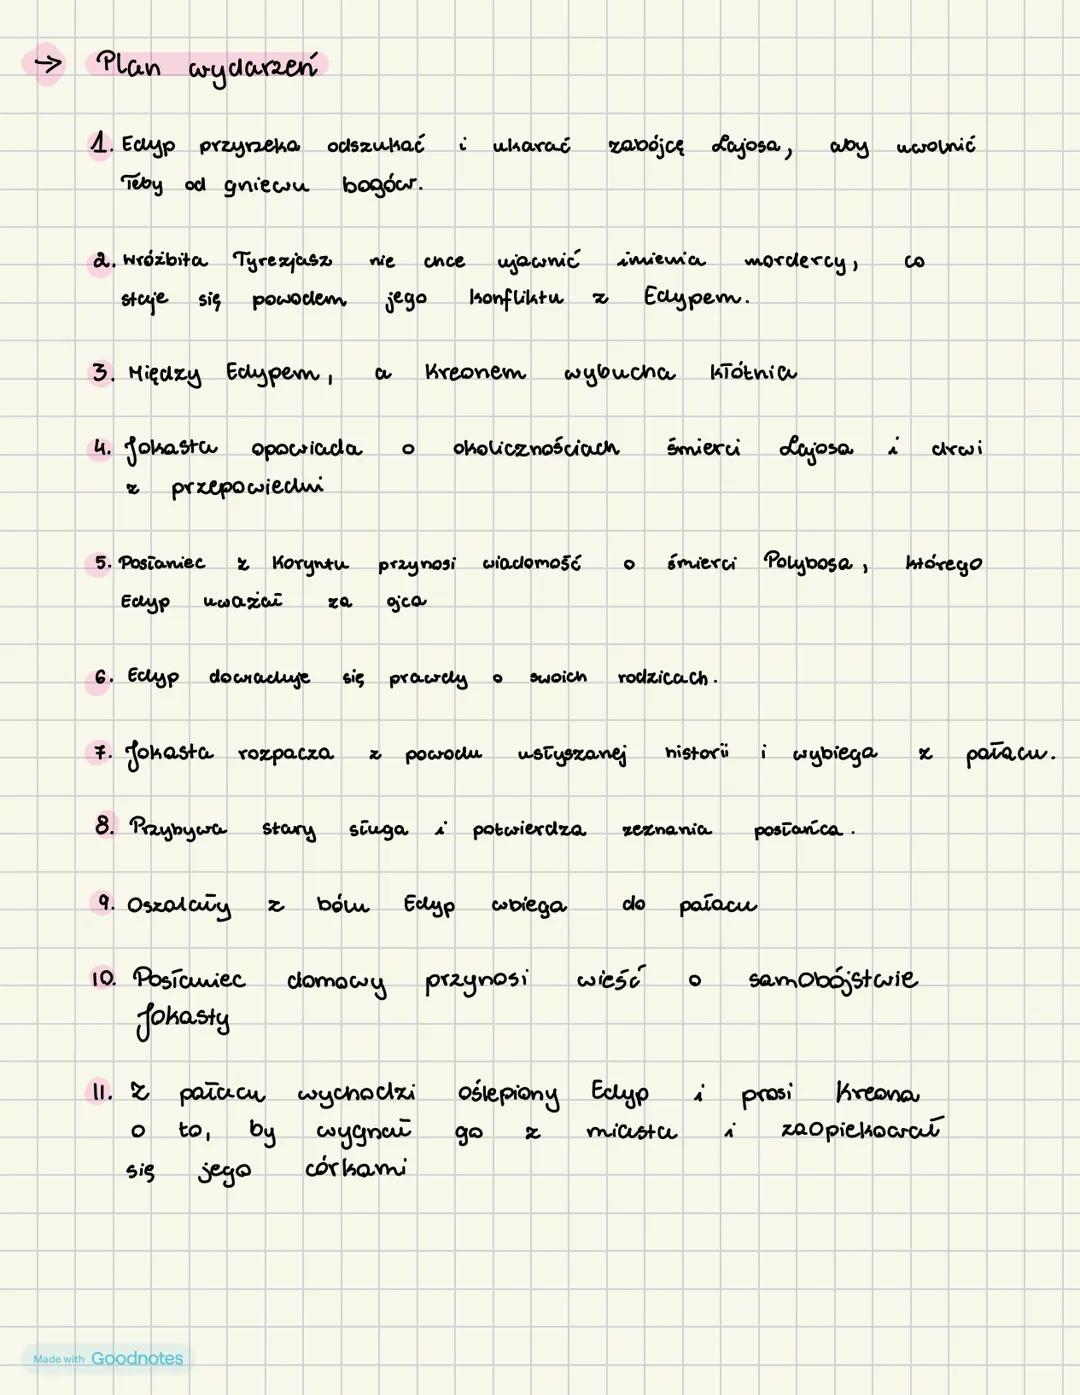 → Plan wydarzeń
1. Edyp przyrzeka odszukać i ukarać zabójcę Lajosa, aby uwolnić
Teby od gniewu bogów.
2. Wróżbita Tyrezjasz nie chce ujawnić imienia mordercy, co
staje się powodem jego konfliktu z Edypem.
3. Między Edypem, a Kreonem wybucha kłótnia
4. Jokasta opowiada o okolicznościach śmierci Lajosa i drwi
z przepowiedni
5. Posłaniec z Koryntu przynosi wiadomość o śmierci Polybosa, którego
Edyp uważał za ojca
6. Edyp dowiaduje się prawdy o swoich rodzicach.
7. Jokasta rozpacza z powodu usłyszanej historii i wybiega z pałacu.
8. Przybywa stary sługa i potwierdza zeznania posłańca.
9. Oszalały z bólu Edyp wbiega do pałacu
10. Posłaniec domowy przynosi wieść o samobójstwie
Jokasty
11. Z pałacu wychodzi oślepiony Edyp i prosi Kreona
o to, by wygnał go z miasta i zaopiekował
się jego córkami
Made with Goodnotes